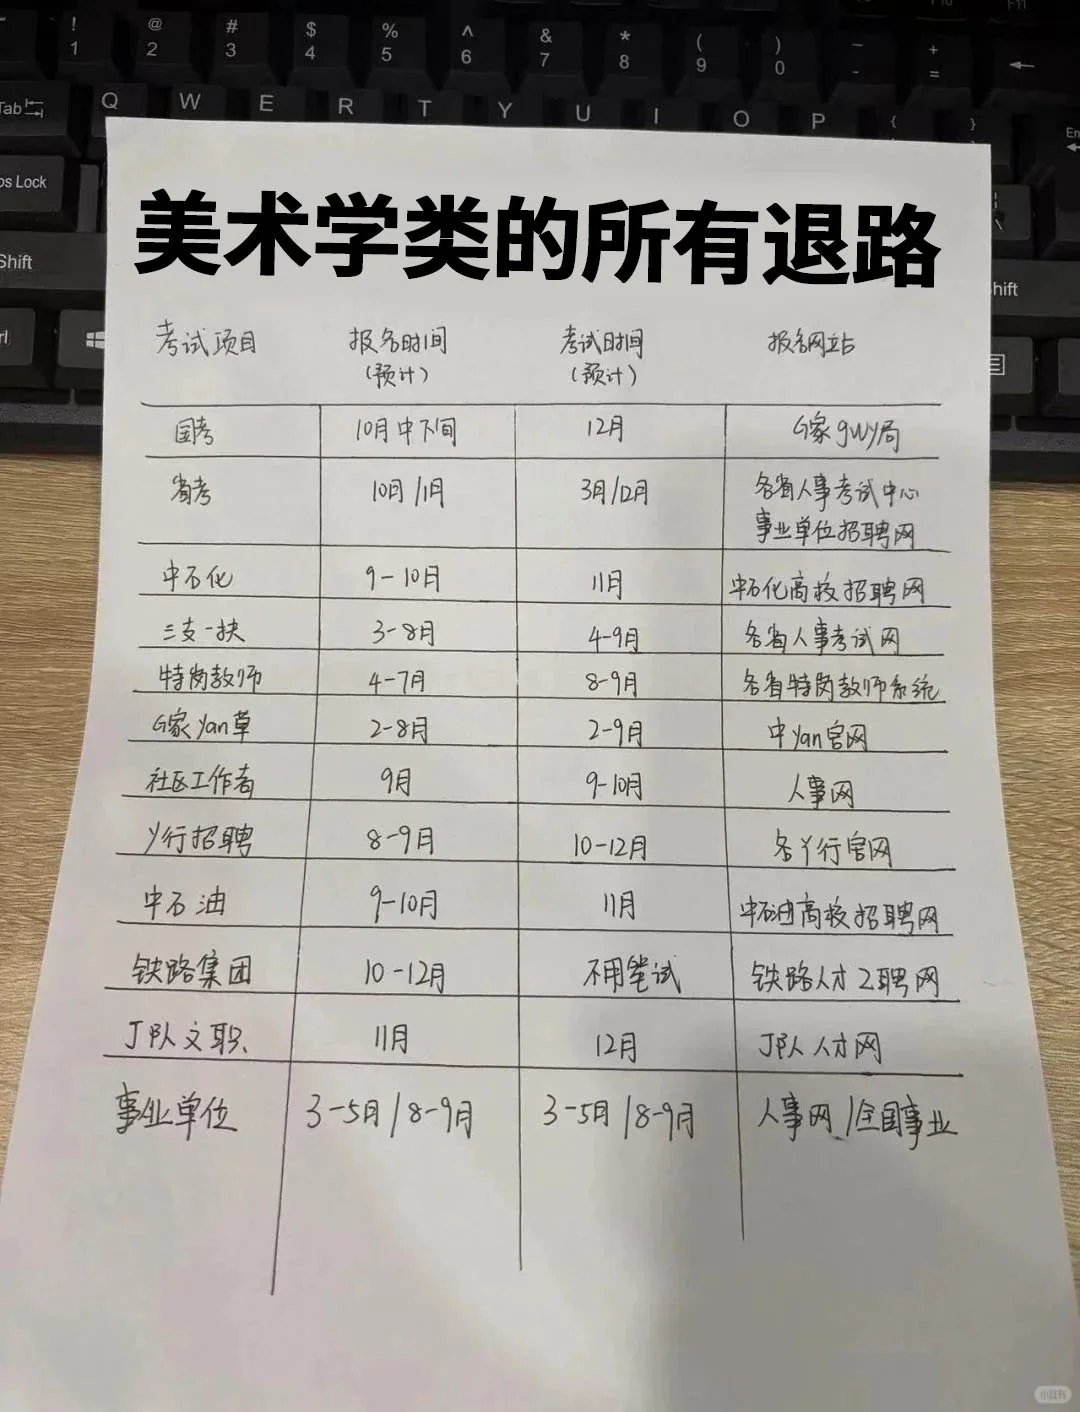 ! @ # $ % ^ & * ( ) _ +
1 2 3 4 5 6 7 8 9 0 - =
Tab Q W E R T Y U I O P { }
ps Lock
Shift
hift
美术学类的所有退路
考试项目 报名时间 考试时间 报名网站
(预计) (预计)
国考 10月中下旬 12月 G家gwy局
省考 10月/1月 3月/12月 各省人事考试中心
事业单位招聘网
中石化 9-10月 11月 中石化高校招聘网
三支一扶 3-8月 4-9月 各省人事考试网
特岗教师 4-7月 8-9月 各省特岗教师系统
G家yan草 2-8月 2-9月 中yan官网
社区工作者 9月 9-10月 人事网
丫行招聘 8-9月 10-12月 各丫行官网
中石油 9-10月 11月 中石油高校招聘网
铁路集团 10-12月 不用笔试 铁路人才Z聘网
J队文职 11月 12月 J队人才网
事业单位 3-5月/8-9月 3-5月/8-9月 人事网/全国事业
小红书